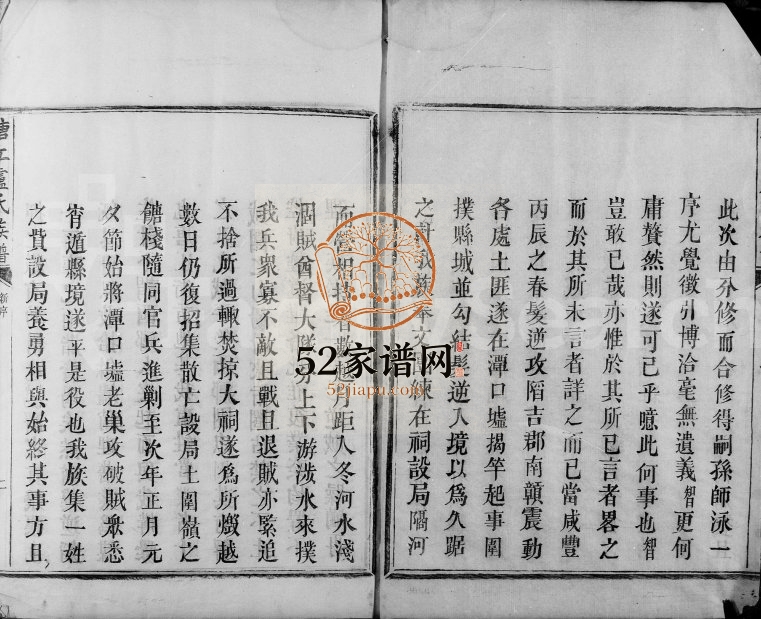 此次由分修而合修得嗣孫師泳一
序尤覺徵引博洽毫無遺義智更何
庸贅然則遂可已乎噫此何事也智
豈敢已哉亦惟於其所已言者畧之
而於其所未言者詳之而已當咸豐
丙辰之春髮逆攻陷吉郡南贛震動
各處土匪遂在潭口墟揭竿起事圍
撲縣城並勾結髮逆入境以為久踞
之計
在祠設局隔河
而營相持者數
距入冬河水淺
涸賊酋督大隊分上下游涉水來撲
我兵衆寡不敵且戰且退賊亦緊追
不捨所過輒焚掠大祠遂為所燬越
數日仍復招集散亡設局土圍嶺之
饒棧隨同官兵進剿至次年正月元
夕節始將潭口墟老巢攻破賊眾悉
宵遁縣境遂平是役也我族集一姓
之貲設局養勇相與始終其事方且
盧氏族譜
新序
52家谱网
52jiapu.com